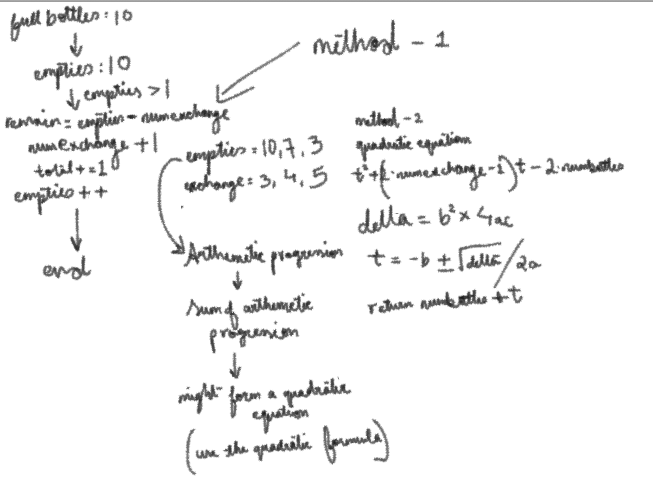 full bottles : 10
empties : 10
empties > 1
remain = empties - numexchange
numexchange + 1
total + = 1
empties + +
end
method - 1
empties = 10, 7, 3
exchange = 3, 4, 5
Arthemetic progression
sum of arthemetic
progression
might form a quadratic
equation
(use the quadratic formula)
method - 2
quadratic equation
t² + (2·numexchange - 1) t - 2·numbottles
delta = b² × 4ac
t = -b ± √delta / 2a
return numbottles + t